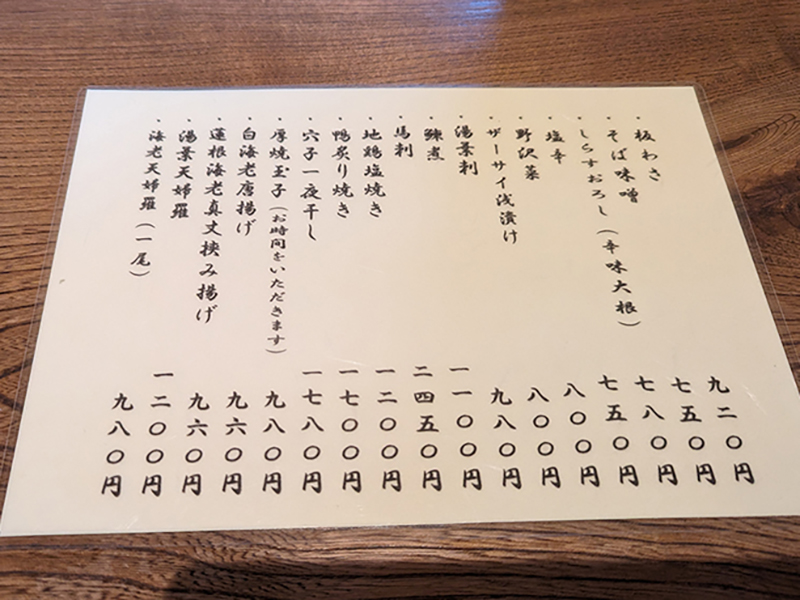 ・板わさ 九二〇円
・そば味噌 七五〇円
・しらすおろし（辛味大根） 七八〇円
・塩辛 七五〇円
・野沢菜 八〇〇円
・ザーサイ浅漬け 八〇〇円
・湯葉刺 九八〇円
・鰊煮 一一〇〇円
・馬刺 二四五〇円
・地鶏塩焼き 一二〇〇円
・鴨炙り焼き 一七〇〇円
・穴子一夜干し 一七八〇円
・厚焼玉子（お時間をいただきます） 九八〇円
・白海老唐揚げ 九六〇円
・蓮根海老真丈挟み揚げ 九六〇円
・湯葉天婦羅 一二〇〇円
・海老天婦羅（一尾） 九八〇円